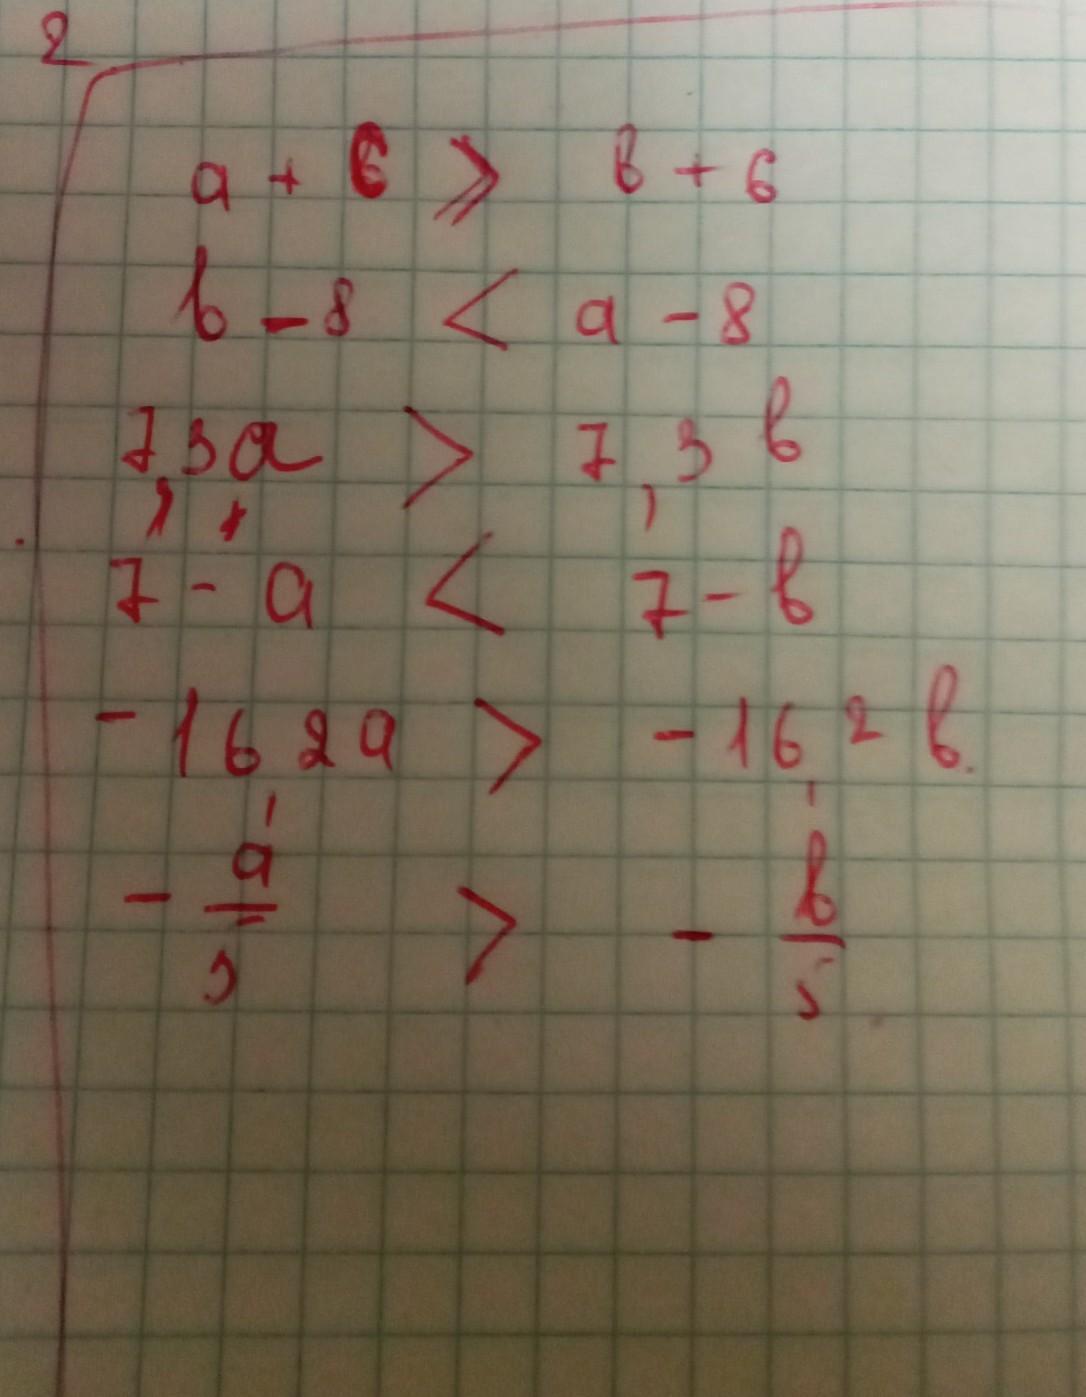 2
a + 6 > b + 6
b - 8 < a - 8
7,3a > 7,3 b
7 - a < 7 - b
-16,2a > -16,2 b
- a/5 > - b/5